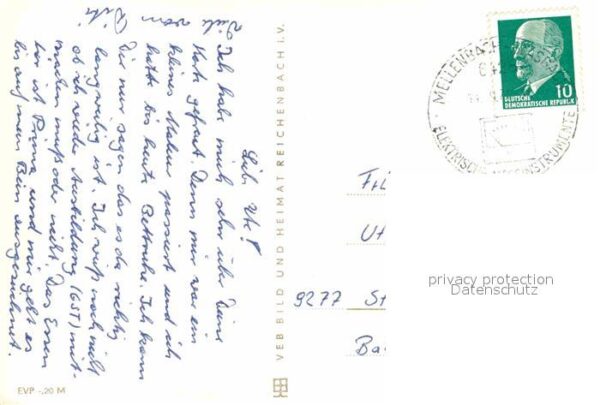 Lieb. Ute!
Ich habe mich sehr über Deine
Karte gefreut. Denn mir war ein
kleines Malheur passiert und ich
hatte bis heute Bettruhe. Ich kann
Dir nur sagen das es da richtig
langweilig ist. Ich weiß noch nicht
ob ich weide Ausbildung (GST) mit-
machen muß oder nicht. Das Essen
hir ist Prima und mir geht es
bis auf mein Bein ausgezeichnet.
Viele
von
VEB BILD UND HEIMAT REICHENBACH i.V.
EVP -,20 M
MELLENBACH-GLASBACH
ELEKTRISCHE MESSINSTRUMENTE
10
DEUTSCHE
DEMOKRATISCHE REPUBLIK
Frl
Ut
9277 St
Ba
privacy protection
Datenschutz